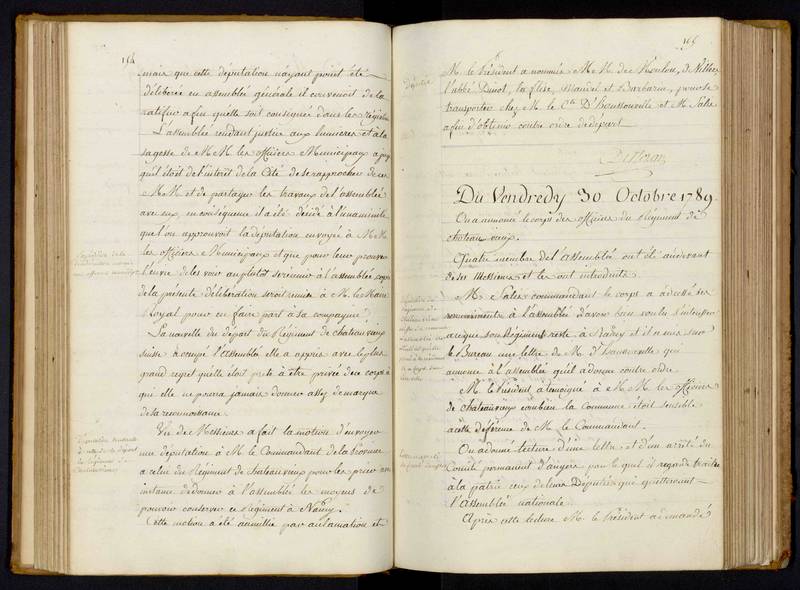 154
mais que cette députation n'ayant point été
délibérée en assemblée générale il convenoit de la
ratifier afin qu'elle soit consignée dans les Régistres
L'assemblée rendant justice aux lumieres et à la
sagesse de MM. les officiers Municipaux a jugé
qu'il étoit de l'interêt de la Cité de se rapprocher de ces
MM. et de partager les travaux de l'assemblée
avec eux, en conséquence il a été décidé à l'unanimité
que l'on approuvoit la députation envoyée à MM.
les officiers Municipaux et que pour leur prouver
l'envie de les voir au plutôt se réunir à l'assemblée copie
de la présente délibération seroit remise à M. le Maire
Royal pour en faire part à sa compagnie.
La nouvelle du départ du Régiment de chateauvieux
suisse a occupé l'assemblée elle a appris avec le plus
grand regret qu'elle étoit prete à être privée d'un corps à
qui elle ne pourra jamais donner assez de marques
de sa reconnoissance.
Un de Messieurs a fait la motion d'envoyer
une députation à M. le Commandant de la Province
et à celui du Régiment de chateauvieux pour les prier avec
instance de donner à l'assemblée les moyens de
pouvoir conserver ce Régiment à Nancy.
Cette motion a été accueillie par aclamation et
165
M. le Président a nommé MM. de
l'abbé Mandel et pour se
transporter chez M. le Cte D'houssonville et M. Salis
afin d'obtenir contre ordre de départ
Du Vendredy 30 Octobre 1789.
On a annoncé le corps des officiers du Régiment de
chateau vieux.
Quatre membres de l'assemblée ont été au devant
de ces Messieurs et les ont introduits.
M. Salis commandant le corps a adressé ses
remerciments à l'assemblée d'avoir bien voulu s'intéresser
à ce que son Régiment reste à Nancy et il a mis sur
le Bureau une lettre de M. D'houssonville qui
annonce à l'assemblée qu'il a donné contre ordre.
M. le Président a témoigné à MM. les officiers
de chateauvieux combien la Commune étoit sensible
à cette déférence de M. le Commandant.
On a donné lecture d'une lettre et d'un arrêté du
Comité permanent d'angers par lequel il regarde traitre
à la patrie ceux de leurs Députés qui quitteront
l'Assemblée nationale.
Après cette lecture M. le Président a demandé